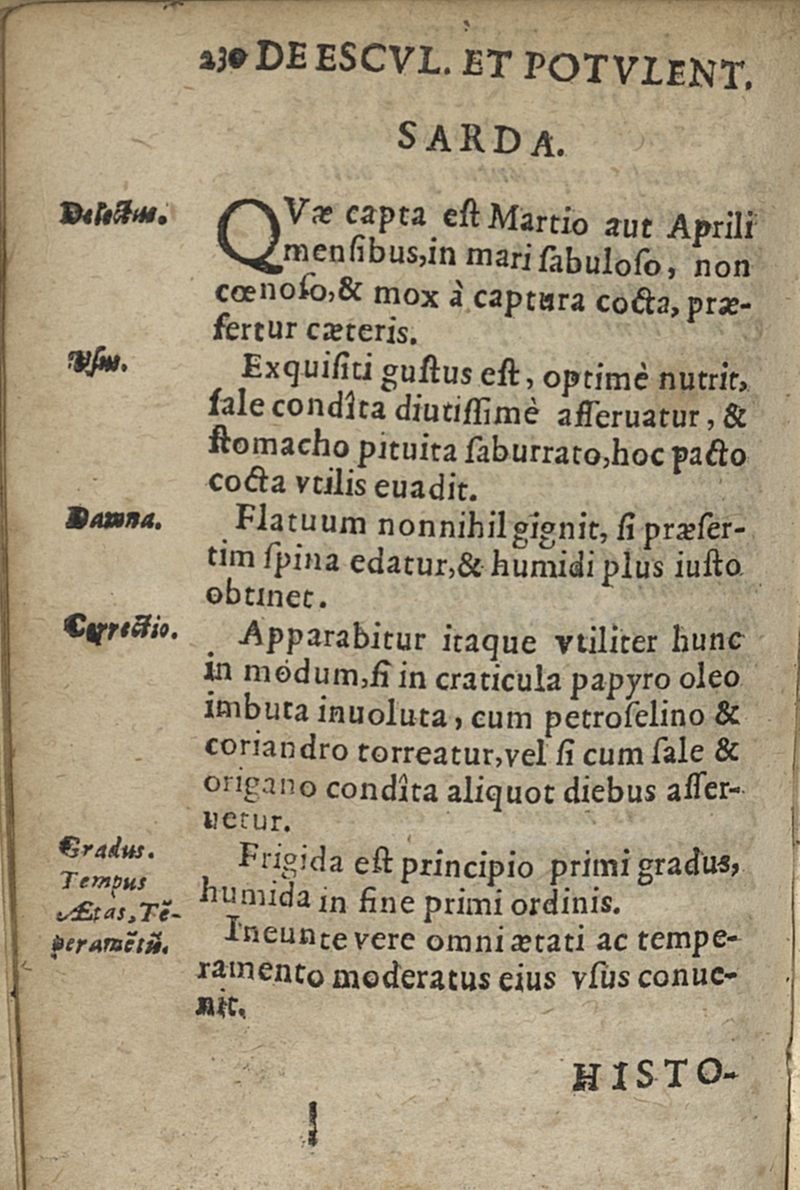 230 DE ESCVL. ET POTVLENT.
SARDA.
Delectus.
QVæ capta est Martio aut Aprili
mensibus, in mari sabuloso, non
cœnoso, & mox à captura cocta, præ-
fertur cæteris.
Vsus.
Exquisiti gustus est, optimè nutrit,
sale condîta diutissimè asseruatur, &
stomacho pituita saburrato, hoc pacto
cocta vtilis euadit.
Damna.
Flatuum nonnihil gignit, si præser-
tim spina edatur, & humidi plus iusto
obtinet.
Correctio.
Apparabitur itaque vtiliter hunc
in modum, si in craticula papyro oleo
imbuta inuoluta, cum petroselino &
coriandro torreatur, vel si cum sale &
origano condîta aliquot diebus asser-
uetur.
Gradus.
Frigida est principio primi gradus,
humida in fine primi ordinis.
Tempus
Ætas, Tē-
peramētū.
Ineunte vere omni ætati ac tempe-
ramento moderatus eius vsus conue-
nit.
HISTO-